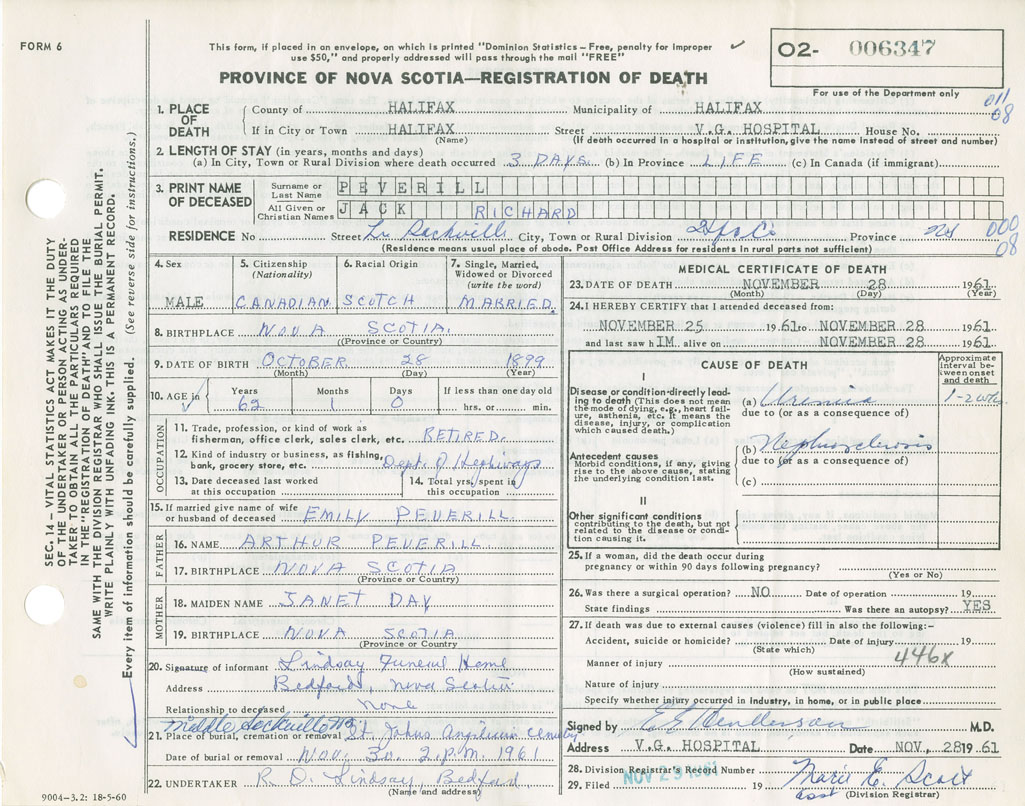 FORM 6
This form, if placed in an envelope, on which is printed "Dominion Statistics—Free, penalty for improper
use $50," and properly addressed will pass through the mail "FREE"
PROVINCE OF NOVA SCOTIA—REGISTRATION OF DEATH
02- 006347
For use of the Department only
011
08
1. PLACE OF DEATH
County of HALIFAX Municipality of HALIFAX
If in City or Town HALIFAX Street V.G. HOSPITAL House No.
(Name) (If death occurred in a hospital or institution, give the name instead of street and number)
2. LENGTH OF STAY (in years, months and days)
(a) In City, Town or Rural Division where death occurred 3 DAYS (b) In Province LIFE (c) In Canada (if immigrant)
3. PRINT NAME OF DECEASED
Surname or Last Name PEVERILL
All Given or Christian Names JACK RICHARD
RESIDENCE No Street Lr Sackville City, Town or Rural Division Hfx Co. Province NS
000
08
(Residence means usual place of abode. Post Office Address for residents in rural parts not sufficient)
4. Sex
MALE
5. Citizenship
(Nationality)
CANADIAN
6. Racial Origin
SCOTCH
7. Single, Married,
Widowed or Divorced
(write the word)
MARRIED.
8. BIRTHPLACE NOVA SCOTIA.
(Province or Country)
9. DATE OF BIRTH OCTOBER 28 1899
(Month) (Day) (Year)
10. AGE in
Years Months Days If less than one day old
62 1 0 hrs. or min.
OCCUPATION
11. Trade, profession, or kind of work as
fisherman, office clerk, sales clerk, etc. RETIRED.
12. Kind of industry or business, as fishing,
bank, grocery store, etc. Dept. of Highways
13. Date deceased last worked
at this occupation
14. Total yrs. spent in
this occupation
15. If married give name of wife
or husband of deceased EMILY PEVERILL.
FATHER
16. NAME ARTHUR PEVERILL
17. BIRTHPLACE NOVA SCOTIA
(Province or Country)
MOTHER
18. MAIDEN NAME JANET DAY
19. BIRTHPLACE NOVA SCOTIA
(Province or Country)
20. Signature of informant Lindsay Funeral Home
Address Bedford, Nova Scotia
Relationship to deceased none
Middle Sackville NS
21. Place of burial, cremation or removal St. Johns Anglican Cemetry
Date of burial or removal Nov. 30. 2.P.M. 1961
22. UNDERTAKER R. D. Lindsay, Bedford
(Name and address)
9004-3.2: 18-5-60
MEDICAL CERTIFICATE OF DEATH
23. DATE OF DEATH NOVEMBER 28 1961
(Month) (Day) (Year)
24. I HEREBY CERTIFY that I attended deceased from:
NOVEMBER 25 1961 to NOVEMBER 28 1961
and last saw hIM. alive on NOVEMBER 28 1961
CAUSE OF DEATH
Approximate interval between onset and death
I
Disease or condition directly leading to death (This does not mean the mode of dying, e.g., heart failure, asthenia, etc. It means the disease, injury, or complication which caused death.)
(a) Uremia 1-2 wks.
due to (or as a consequence of)
Antecedent causes
Morbid conditions, if any, giving rise to the above cause, stating the underlying condition last.
(b) Nephrosclerosis
due to (or as a consequence of)
(c)
II
Other significant conditions
contributing to the death, but not related to the disease or condition causing it.
25. If a woman, did the death occur during
pregnancy or within 90 days following pregnancy?
(Yes or No)
26. Was there a surgical operation? NO Date of operation 19
State findings Was there an autopsy? YES
27. If death was due to external causes (violence) fill in also the following:—
Accident, suicide or homicide? Date of injury 19
(State which)
446x
Manner of injury
(How sustained)
Nature of injury
Specify whether injury occurred in industry, in home, or in public place
Signed by E E Henderson M.D.
Address V.G. HOSPITAL Date NOV, 28 19 61
28. Division Registrar's Record Number
NOV 29 1961
29. Filed 19 Marie E. Scott
asst (Division Registrar)
SEC. 14—VITAL STATISTICS ACT MAKES IT THE DUTY
OF THE UNDERTAKER OR PERSON ACTING AS UNDER-
TAKER TO OBTAIN ALL THE PARTICULARS REQUIRED
IN THE "REGISTRATION OF DEATH" AND TO FILE THE
SAME WITH THE DIVISION REGISTRAR WHO SHALL ISSUE THE BURIAL PERMIT.
WRITE PLAINLY WITH UNFADING INK. THIS IS A PERMANENT RECORD.
Every item of information should be carefully supplied. (See reverse side for instructions.)